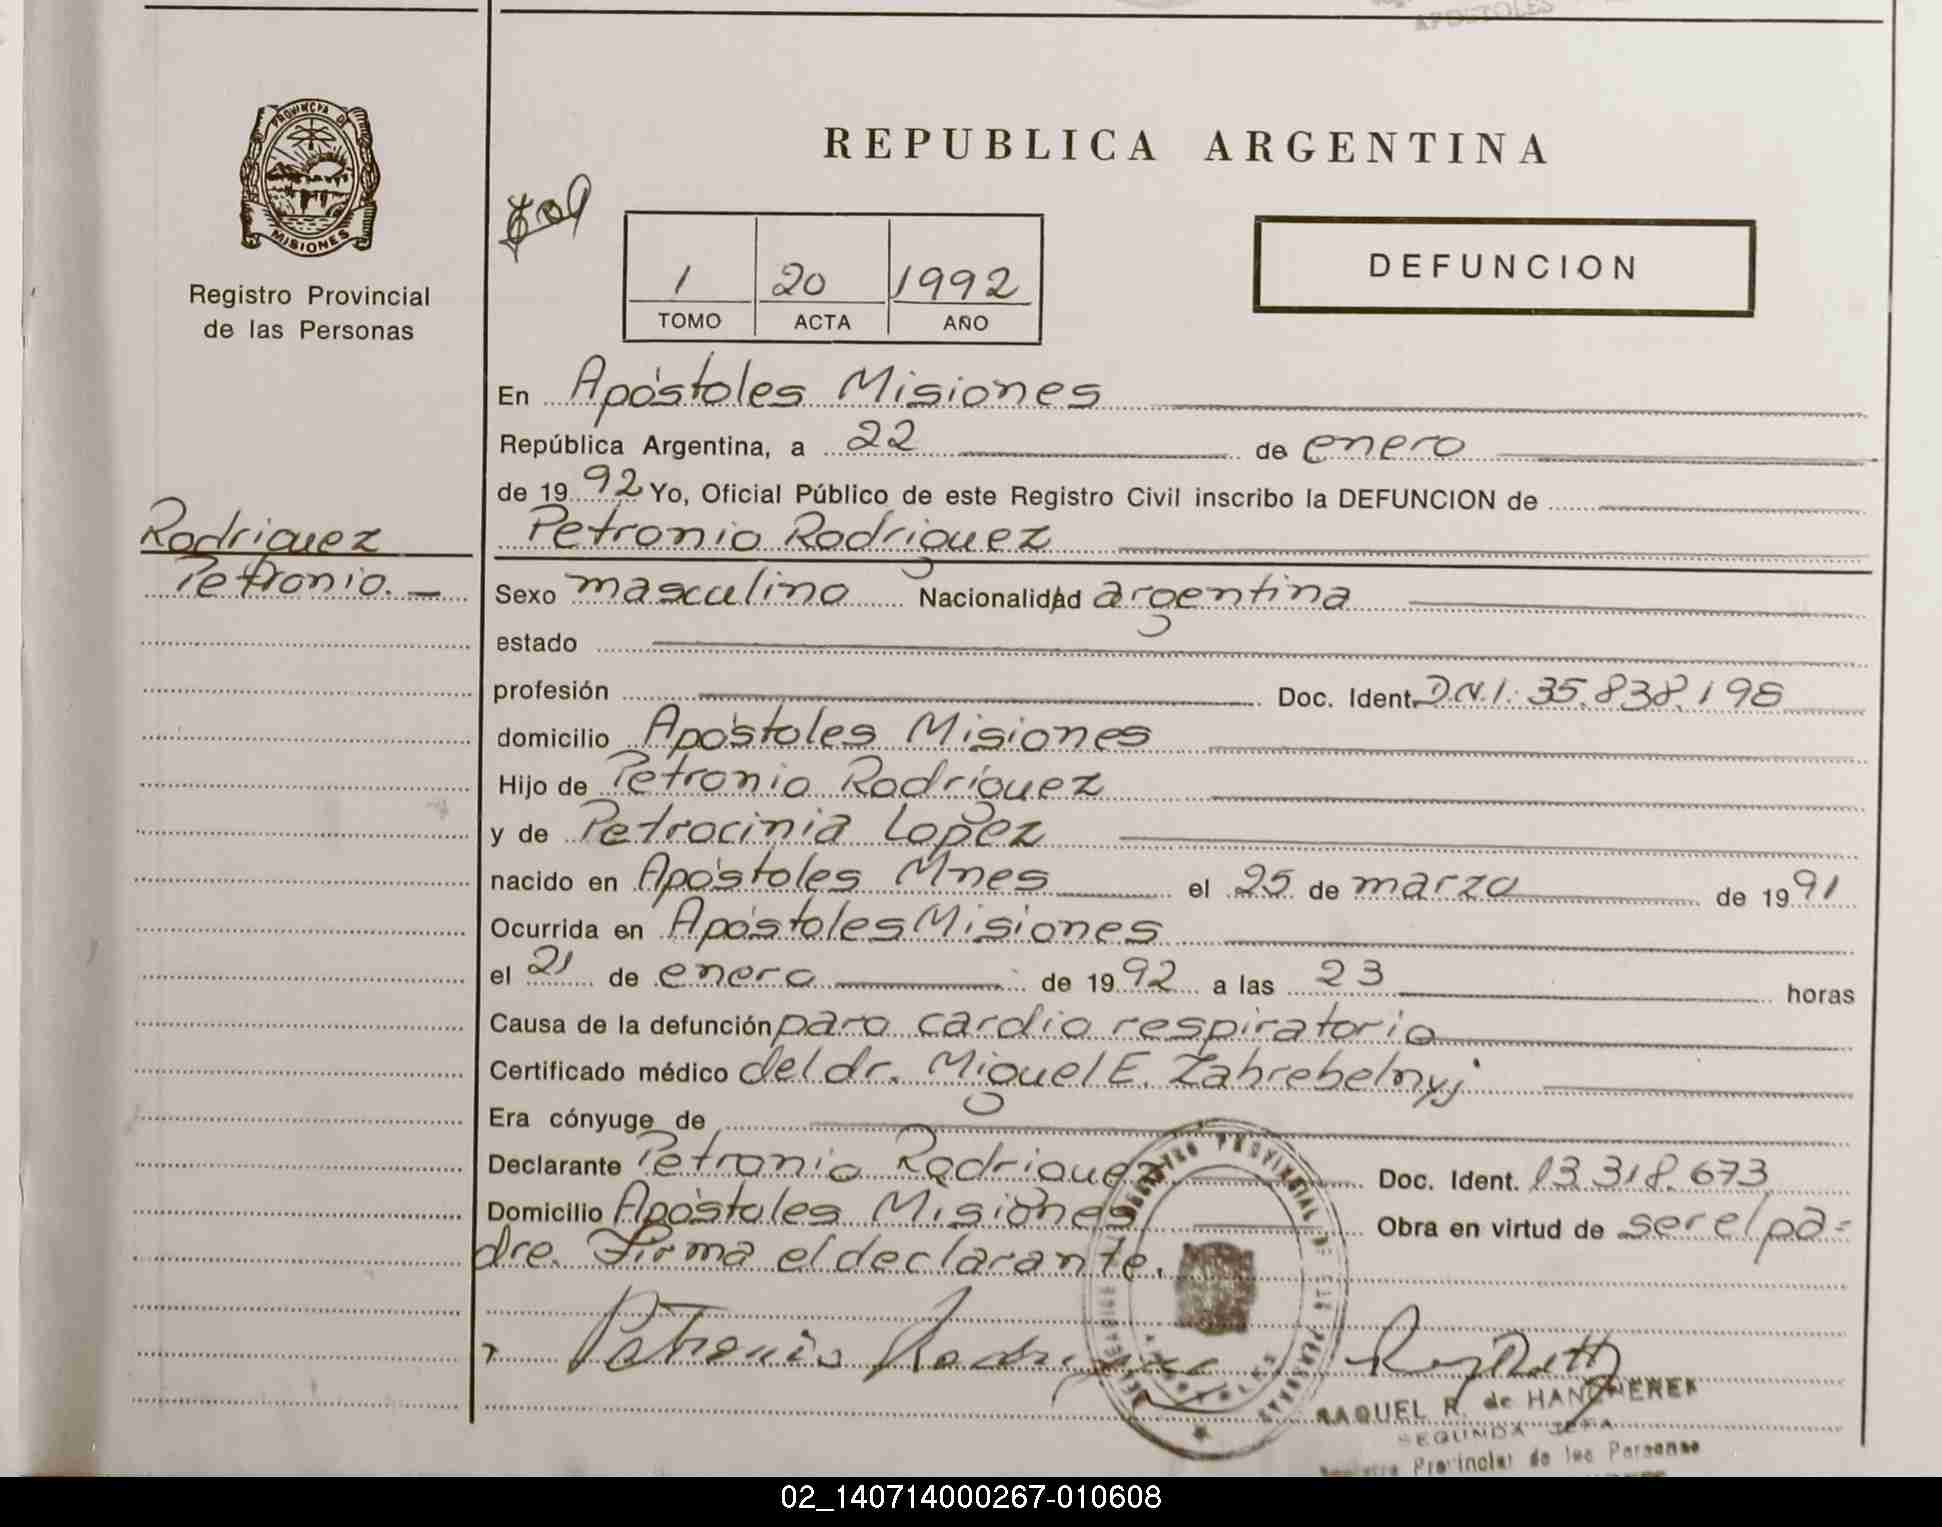 APOSTOLES
PROVINCIA DE
MISIONES
Registro Provincial
de las Personas
REPUBLICA ARGENTINA
1 20 1992
TOMO ACTA AÑO
DEFUNCION
En Apóstoles Misiones
República Argentina, a 22 de enero
de 1992 Yo, Oficial Público de este Registro Civil inscribo la DEFUNCION de
Rodriguez
Petronio Rodriguez
Petronio. —
Sexo masculino Nacionalidad argentina
estado
profesión Doc. Ident. D.N.I. 35.838.198
domicilio Apóstoles Misiones
Hijo de Petronio Rodríguez
y de Petrocinia Lopez
nacido en Apóstoles Mnes el 25 de marzo de 1991
Ocurrida en Apóstoles Misiones
el 21 de enero de 1992 a las 23 horas
Causa de la defunción paro cardio respiratorio
Certificado médico del dr. Miguel E. Zahrebelnyj
Era cónyuge de
Declarante Petronio Rodriguez Doc. Ident. 13.318.673
Domicilio Apóstoles Misiones Obra en virtud de ser el pa=
dre. Firma el declarante.
Petronio Rodriguez
REGISTRO PROVINCIAL DE LAS PERSONAS
APOSTOLES
RAQUEL R. de HANCHEREK
SEGUNDA JEFA
Registro Provincial de las Personas
02_140714000267-010608